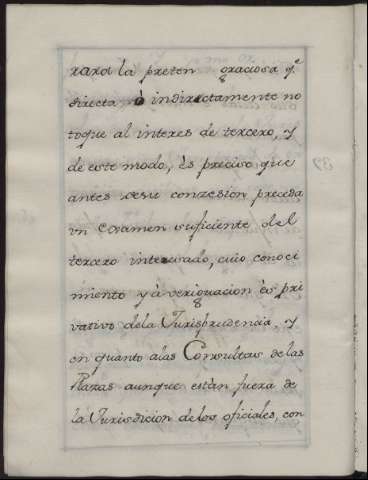 rara la preten graciosa qe
directa ò indirectamente no
toque al interes de tercero, y
de este modo, es preciso que
antes desu conzesion preceda
vn examen suficiente del
tercero interesado, cuio conoci
miento y àveriguacion ès pri
vativo dela Jurisprudencia, y
en quanto alas Consultas de las
Plazas aunque estàn fuera de
la Jurisdicion delos oficiales, con